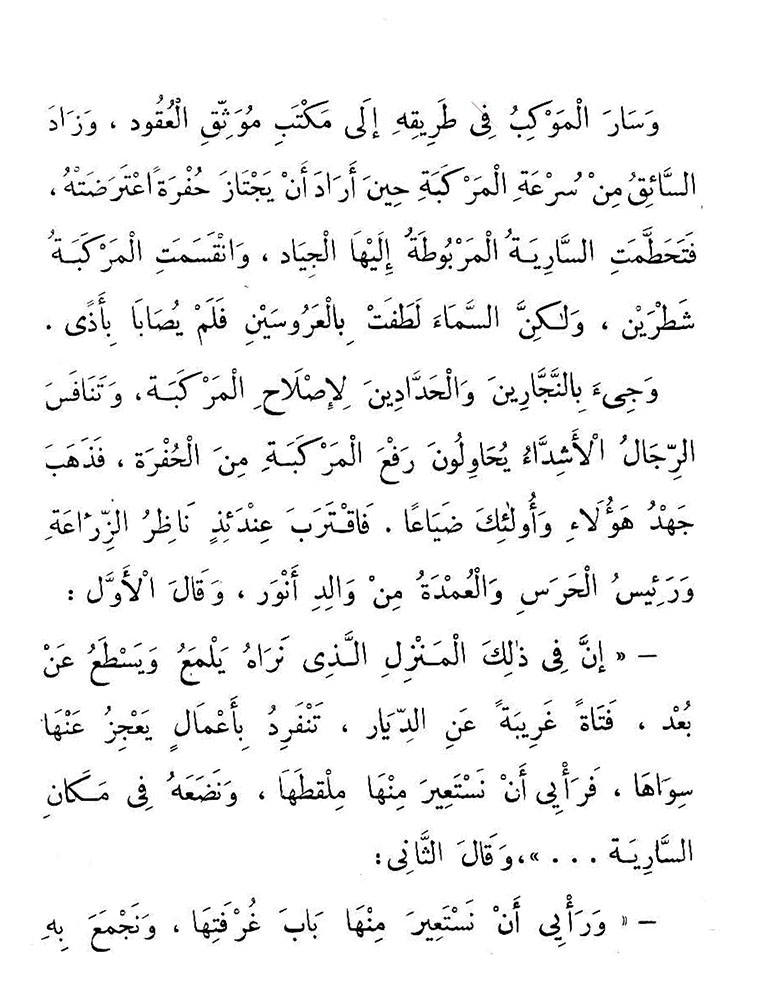 وَسَارَ الْمَوْكِبُ فِى طَرِيقِهِ إِلَى مَكْتَبِ مُوَثِّقِ الْعُقُود ، وَزَادَ
السَّائِقُ مِنْ سُرْعَةِ الْمَرْكَبَةِ حِينَ أَرَادَ أَنْ يَجْتَازَ حُفْرَةً اعْتَرَضَتْهُ ،
فَتَحَطَّمَتِ السَّارِيَةُ الْمَرْبُوطَةُ إِلَيْهَا الْجِيَاد ، وَانْقَسَمَتِ الْمَرْكَبَةُ
شَطْرَيْن ، وَلٰكِنَّ السَّمَاءَ لَطَفَتْ بِالْعَرُوسَيْنِ فَلَمْ يُصَابَا بِأَذًى .
وَجِىءَ بِالنَّجَّارِينَ وَالْحَدَّادِينَ لِإِصْلَاحِ الْمَرْكَبَة ، وَتَنَافَسَ
الرِّجَالُ الْأَشِدَّاءُ يُحَاوِلُونَ رَفْعَ الْمَرْكَبَةِ مِنَ الْحُفْرَة ، فَذَهَبَ
جَهْدُ هَؤُلَاءِ وَأُولٰئِكَ ضَيَاعًا . فَاقْتَرَبَ عِنْدَئِذٍ نَاظِرُ الزِّرَاعَةِ
وَرَئِيسُ الْحَرَسِ وَالْعُمْدَةُ مِنْ وَالِدِ أَنْوَر ، وَقَالَ الْأَوَّل :
– « إِنَّ فِى ذٰلِكَ الْمَنْزِلِ الَّذِى نَرَاهُ يَلْمَعُ وَيَسْطَعُ عَنْ
بُعْد ، فَتَاةً غَرِيبَةً عَنِ الدِّيَار ، تَنْفَرِدُ بِأَعْمَالٍ يَعْجِزُ عَنْهَا
سِوَاهَا ، فَرَأْيِى أَنْ نَسْتَعِيرَ مِنْهَا مِلْقَطَهَا ، وَنَضَعَهُ فِى مَكَانِ
السَّارِيَة . . . »، وَقَالَ الثَّانِى :
– « وَرَأْيِى أَنْ نَسْتَعِيرَ مِنْهَا بَابَ غُرْفَتِهَا ، وَنَجْمَعَ بِهِ